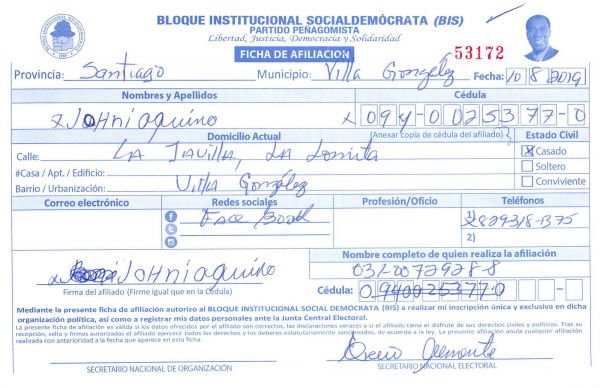 BLOQUE INSTITUCIONAL SOCIALDEMÓCRATA (BIS)
PARTIDO PEÑAGOMISTA
Libertad, Justicia, Democracia y Solidaridad
FICHA DE AFILIACION
53172
Provincia: Santiago Municipio: Villa González Fecha: 10 8 2019
Nombres y Apellidos Cédula
x JOHNi aquino x 094-0025377-0
Domicilio Actual (Anexar copia de cédula del afiliado) Estado Civil
Calle: LA JAVILLA, LA Lomita X Casado
#Casa / Apt. / Edificio: Soltero
Barrio / Urbanización: Villa González Conviviente
Correo electrónico Redes sociales Profesión/Oficio Teléfonos
Face Book 1) 829318-1375
2)
Nombre completo de quien realiza la afiliación
x JOHNiaquino 031-0072928-8
Firma del afiliado (Firme igual que en la Cédula) Cédula: 09400253770
Mediante la presente ficha de afiliación autorizo al BLOQUE INSTITUCIONAL SOCIAL DEMÓCRATA (BIS) a realizar mi inscripción única y exclusiva en dicha
organización política, así como a registrar mis datos personales ante la Junta Central Electoral.
La presente ficha de afiliación es válida si los datos ofrecidos por el afiliado son correctos, las declaraciones veraces y si el afiliado tiene el disfrute de sus derechos civiles y políticos. Tras su
recepción, sello y firmas autorizadas el afiliado ejercerá todos los derechos y los deberes estatutariamente sancionados, de acuerdo a la ley. La presente afiliación anula cualquier afiliación
realizada con anterioridad a la fecha que aparece en esta ficha.
Clemente
SECRETARIO NACIONAL DE ORGANIZACIÓN SECRETARIO NACIONAL